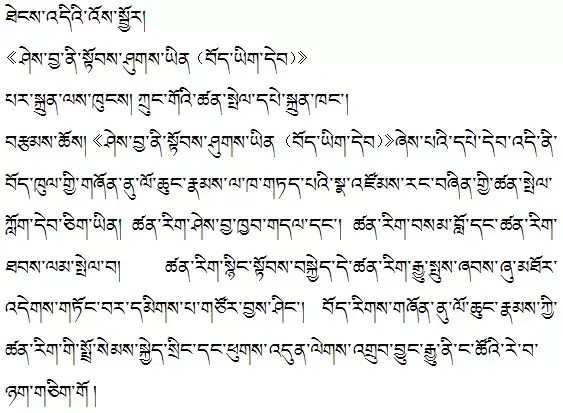 ཐེངས་འདིའི་འོས་སྦྱོར།
《ཤེས་བྱ་ནི་སྟོབས་ཤུགས་ཡིན（བོད་ཡིག་དེབ）》
པར་སྐྲུན་ལས་ཁུངས། ཀྲུང་གོའི་ཚན་སྤེལ་དཔེ་སྐྲུན་ཁང་།
བརྩམས་ཆོས།《ཤེས་བྱ་ནི་སྟོབས་ཤུགས་ཡིན（བོད་ཡིག་དེབ）》ཞེས་པའི་དཔེ་དེབ་འདི་ནི་
བོད་ཁུལ་གྱི་གཞོན་ནུ་ལོ་ཆུང་རྣམས་ལ་ཁ་གཏད་པའི་སྣ་འཛོམས་རང་བཞིན་གྱི་ཚན་སྤེལ་
ཀློག་དེབ་ཅིག་ཡིན། ཚན་རིག་ཤེས་བྱ་ཁྱབ་གདལ་དང་། ཚན་རིག་བསམ་བློ་དང་ཚན་རིག་
ཐབས་ལམ་སྤེལ་བ། ཚན་རིག་སྙིང་སྟོབས་བསྐྱེད་དེ་ཚན་རིག་རྒྱུ་སྤུས་ཞབས་ཞུ་མཐོར་
འདེགས་གཏོང་བར་དམིགས་པ་གཙོར་བྱས་ཤིང་། བོད་རིགས་གཞོན་ནུ་ལོ་ཆུང་རྣམས་ཀྱི་
ཚན་རིག་གི་སྤྲོ་སེམས་སྐྱེད་སྲིང་དང་ཕུགས་འདུན་ལེགས་འགྲུབ་བྱུང་རྒྱུ་ནི་ང་ཚོའི་རེ་བ་
ཉག་གཅིག་གོ །